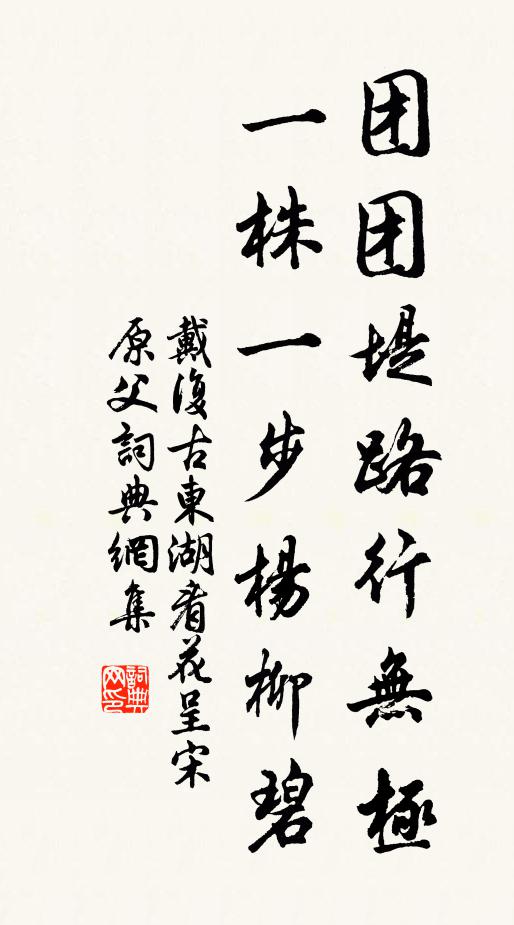 团团堤路行無極
一株一步楊柳碧
戴復古東湖看花呈宋
原父詞典網集
詞典
网印